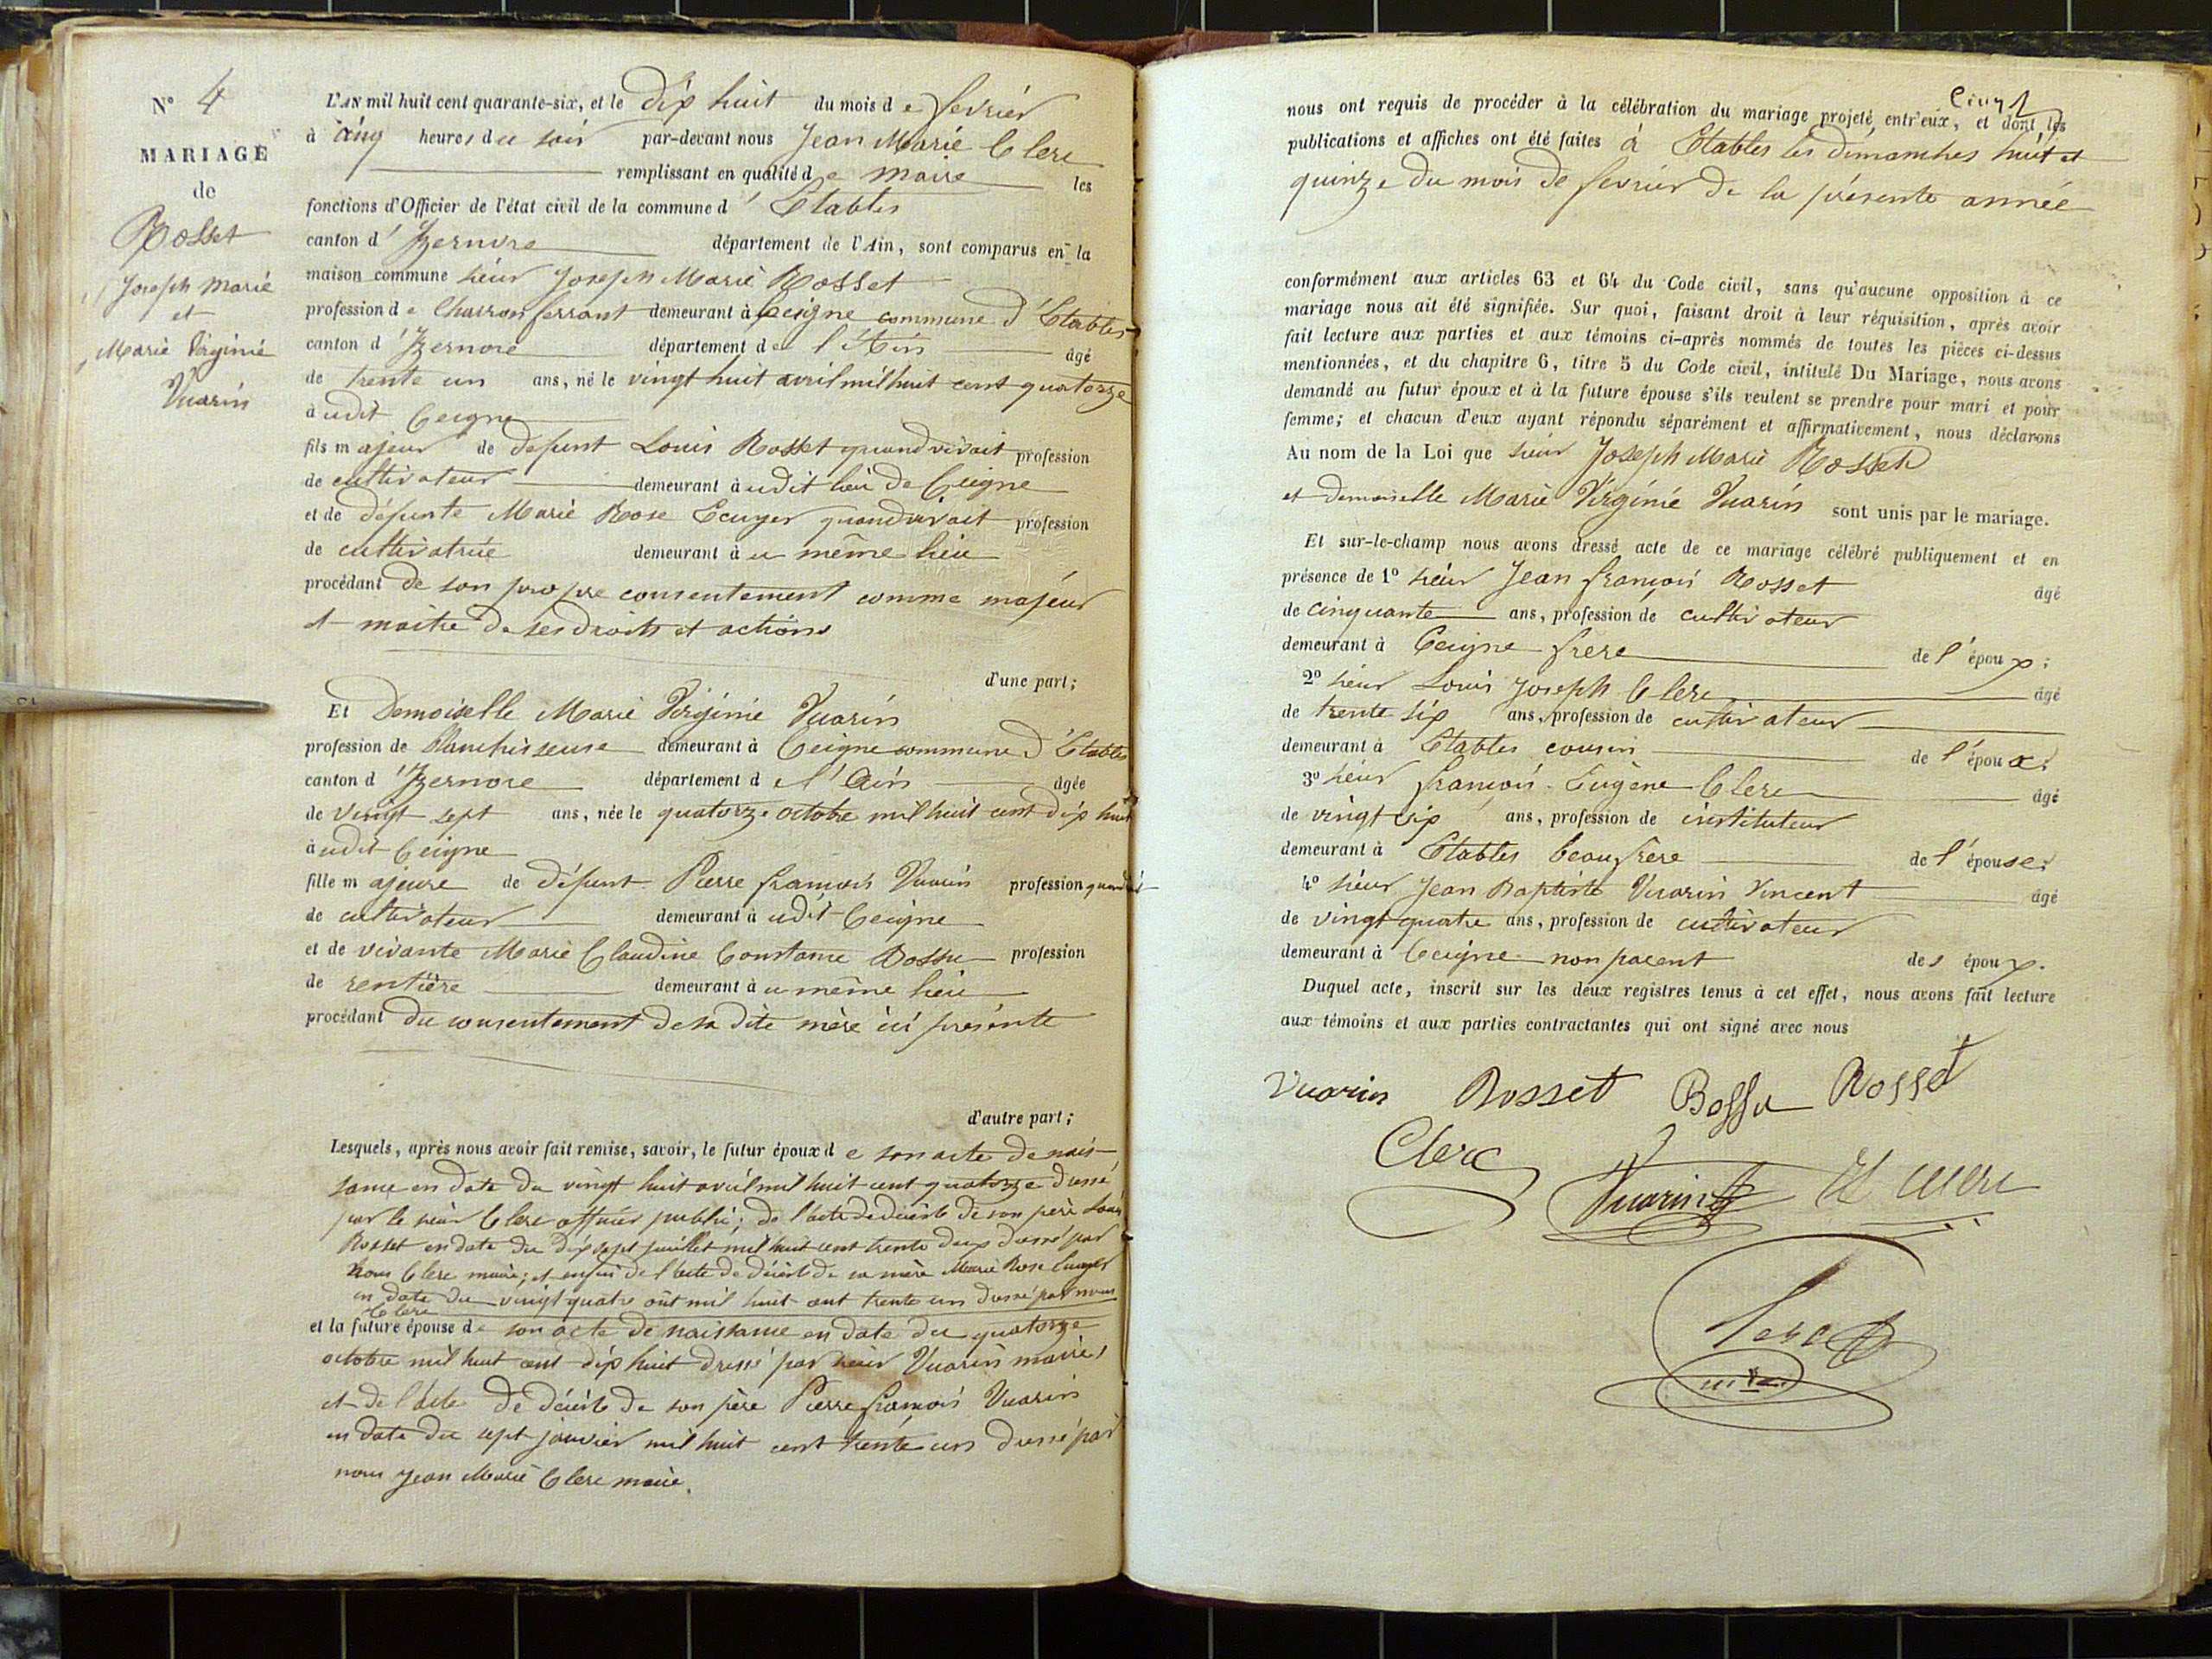 N° 4
MARIAGE
de
Rosset
Joseph Marie
et
Marie Virginie
Vuarin
L'AN mil huit cent quarante-six, et le dix huit du mois de fevrier
à cinq heures du soir par-devant nous Jean Marie Clerc
remplissant en qualité de maire les
fonctions d'Officier de l'état civil de la commune d'Etables
canton d'Izernore département de l'Ain, sont comparus en la
maison commune sieur Joseph Marie Rosset
profession de Charron ferrant demeurant à Ceigne commune d'Etables
canton d'Izernore département de l'Ain âgé
de trente un ans, né le vingt huit avril mil huit cent quatorze
audit Ceigne
fils majeur de défunt Louis Rosset quand vivait profession
de cultivateur demeurant audit lieu de Ceigne
et de défunte Marie Rose Ecuyer quand vivait profession
de cultivatrice demeurant au même lieu
procédant de son propre consentement comme majeur
et maitre de ses droits et actions
d'une part;
Et Demoiselle Marie Virginie Vuarin
profession de Blanchisseuse demeurant à Ceigne commune d'Etables
canton d'Izernore département de l'Ain âgée
de vingt sept ans, née le quatorze octobre mil huit cent dix huit
audit Ceigne
fille majeure de défunt Pierre françois Vuarin profession quand vit
de cultivateur demeurant audit Ceigne
et de vivante Marie Claudine Constance Bossu profession
de rentière demeurant au même lieu
procédant du consentement de sa dite mère ici présente
d'autre part;
Lesquels, après nous avoir fait remise, savoir, le futur époux de son acte de nais-
sance en date du vingt huit avril mil huit cent quatorze dressé
par le sieur Clerc officier public; de l'acte de décès de son père Louis
Rosset en date du dix sept juillet mil huit cent trente deux dressé par
nous Clerc maire; et enfin de l'acte de décès de sa mère Marie Rose Ecuyer
en date du vingt quatre oût mil huit cent trente un dressé par nous
Clerc
et la future épouse de son acte de naissance en date du quatorze
octobre mil huit cent dix huit dressé par sieur Vuarin maire,
et de l'acte de décès de son père Pierre françois Vuarin
en date du sept janvier mil huit cent trente un dressé par
nous Jean Marie Clerc maire.
cinq
nous ont requis de procéder à la célébration du mariage projeté entr'eux, et dont les
publications et affiches ont été faites à Etables les dimanches huit et
quinze du mois de fevrier de la présente année
conformément aux articles 63 et 64 du Code civil, sans qu'aucune opposition à ce
mariage nous ait été signifiée. Sur quoi, faisant droit à leur réquisition, après avoir
fait lecture aux parties et aux témoins ci-après nommés de toutes les pièces ci-dessus
mentionnées, et du chapitre 6, titre 5 du Code civil, intitulé Du Mariage, nous avons
demandé au futur époux et à la future épouse s'ils veulent se prendre pour mari et pour
femme; et chacun d'eux ayant répondu séparément et affirmativement, nous déclarons
Au nom de la Loi que sieur Joseph Marie Rosset
et demoiselle Marie Virginie Vuarin sont unis par le mariage.
Et sur-le-champ nous avons dressé acte de ce mariage célébré publiquement et en
présence de 1° sieur Jean françois Rosset âgé
de cinquante ans, profession de cultivateur
demeurant à Ceigne frere de l'époux;
2° sieur Louis Joseph Clerc âgé
de trente six ans, profession de cultivateur
demeurant à Etables cousin de l'époux;
3° sieur françois Eugène Clerc âgé
de vingt six ans, profession de instituteur
demeurant à Etables beau frère de l'épouse;
4° sieur Jean Baptiste Vuarin Vincent âgé
de vingt quatre ans, profession de cultivateur
demeurant à Ceigne non parent des époux.
Duquel acte, inscrit sur les deux registres tenus à cet effet, nous avons fait lecture
aux témoins et aux parties contractantes qui ont signé avec nous
Vuarin Rosset Bossu Rosset
Clerc Vuarin Clerc
Clerc